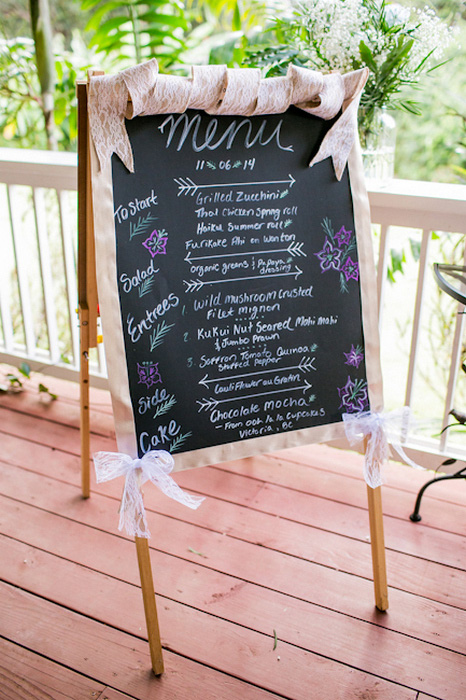 Menu
11·06·14
To Start
Grilled Zucchini
Thai Chicken Spring roll
Haiku Summer roll
Furikake Ahi on Wonton
Salad
organic greens & Papaya dressing
Entrées
1. Wild Mushroom Crusted
Filet Mignon
2. KuKui Nut Seared Mahi Mahi
& Jumbo Prawn
3. Saffron Tomato Quinoa
Stuffed Pepper
Side
Cauliflower au Gratin
Cake
Chocolate Mocha
- From Ooh la la Cupcakes
Victoria, BC